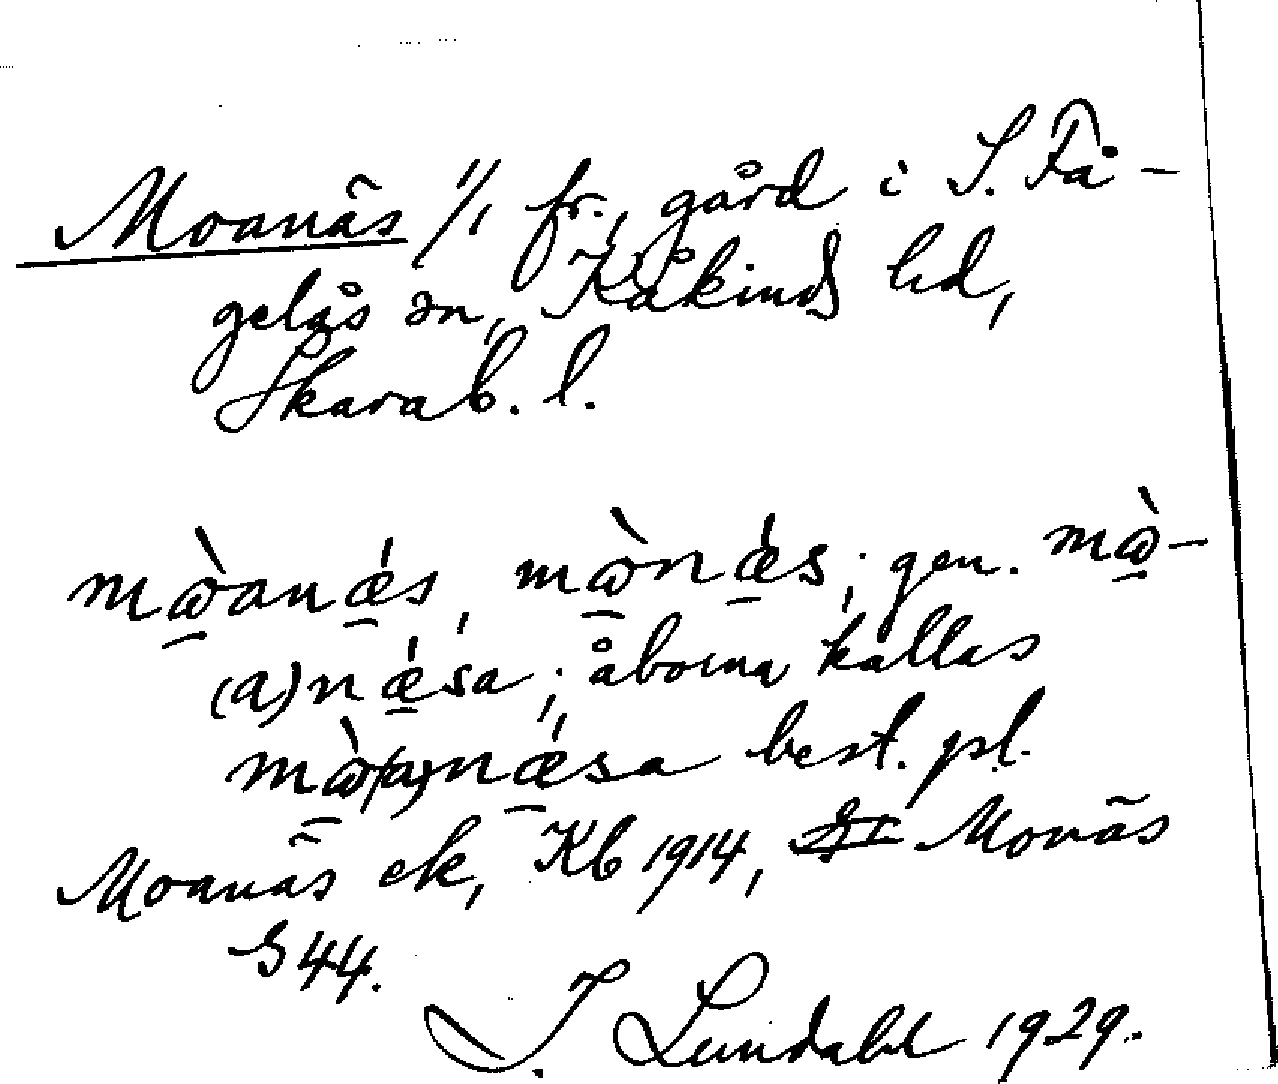 Moanäs 1/1 fr., gård i S. Få-
gelås sn, Kåkinds hd,
Skarab. l.
mὼanǽs, mὼnǽs; gen. mὼ-
(a)nǽsa; åborna kallas
mὼ(a)nǽsa best. pl.
Moanäs ek, Kb 1914, Monäs
S 44.
I. Lundahl 1929.